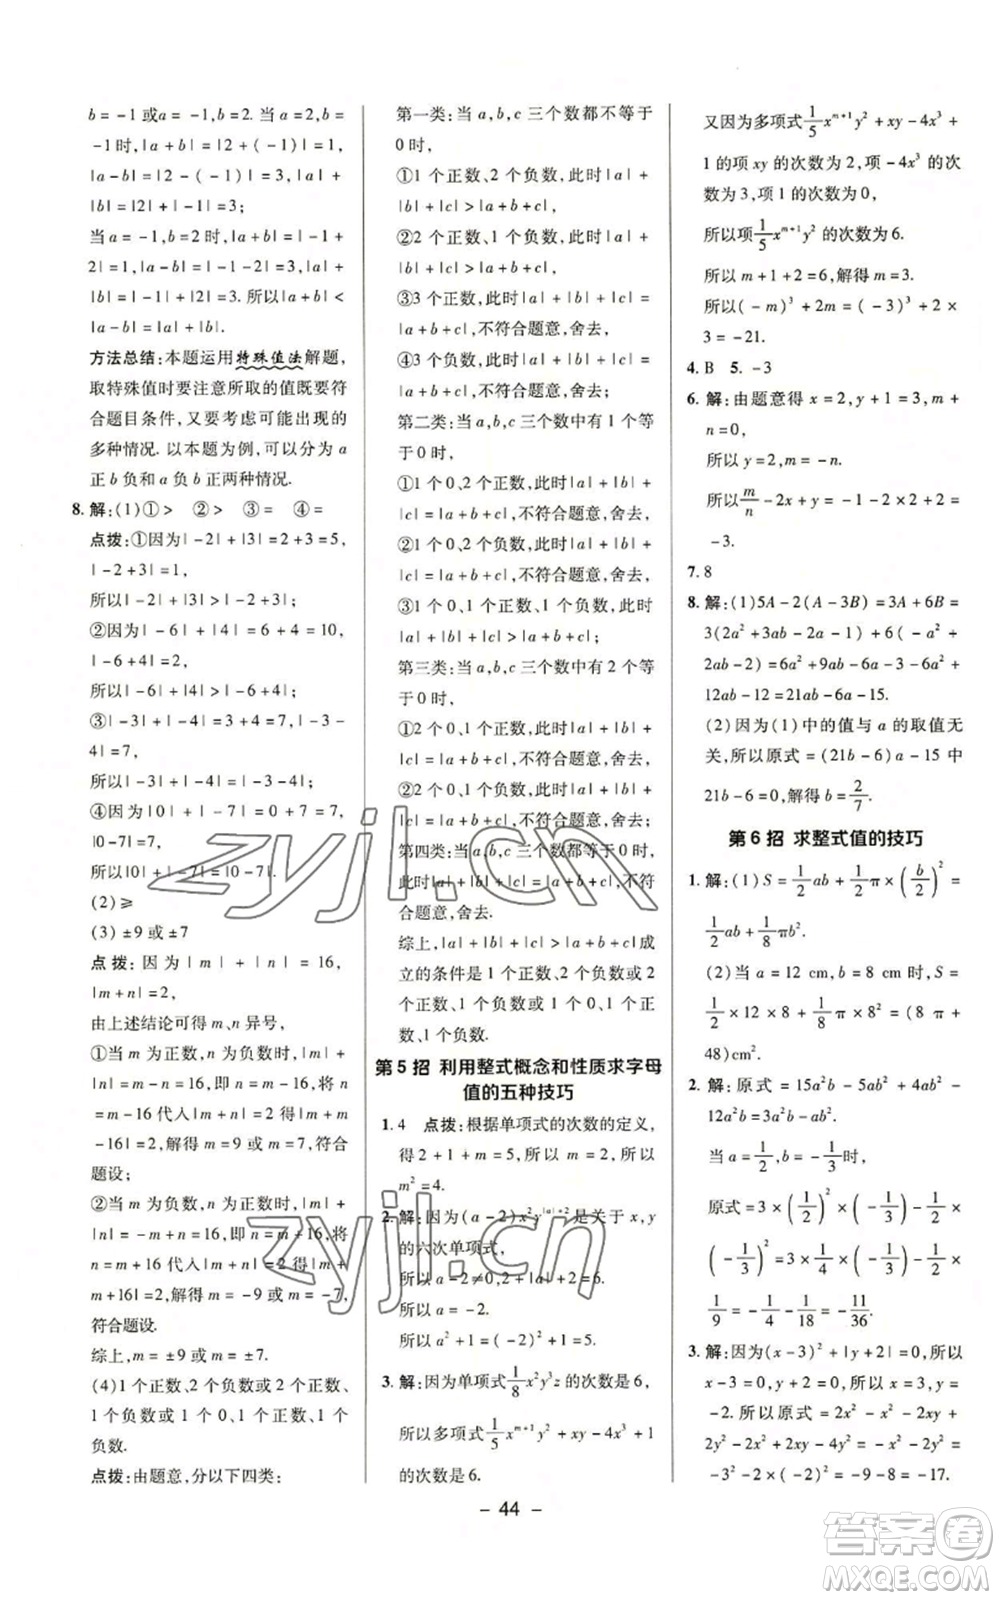 b = -1 或a = -1,b = 2. 当 a = 2,b =
-1时,|a + b| = |2 + (-1)| = 1,
|a - b| = |2 - (-1)| = 3,|a| +
|b| = |2| + |-1| = 3;
当 a = -1,b = 2 时,|a + b| = |-1 +
2| = 1,|a - b| = |-1 - 2| = 3,|a| +
|b| = |-1| + |2| = 3. 所以|a + b| <
|a - b| = |a| + |b|.
方法总结:本题运用特殊值法解题,
取特殊值时要注意所取的值既要符
合题目条件,又要考虑可能出现的
多种情况. 以本题为例,可以分为 a
正 b 负和 a 负 b 正两种情况.
8. 解:(1)①> ②> ③= ④=
点拨:①因为|-2| + |3| = 2 + 3 = 5,
|-2+3| = 1,
所以|-2| + |3| > |-2+3|;
②因为|-6| + |4| = 6 + 4 = 10,
|-6+4| = 2,
所以|-6| + |4| > |-6+4|;
③|-3| + |-4| = 3 + 4 = 7,|-3-
4| = 7,
所以|-3| + |-4| = |-3-4|;
④因为|0| + |-7| = 0 + 7 = 7,
|0-7| = 7,
所以|0| + |-7| = |0-7|.
(2)≥
(3) ±9 或 ±7
点拨:因为 |m| + |n| = 16,
|m+n| = 2,
由上述结论可得 m、n 异号,
①当 m 为正数,n 为负数时,|m| +
|n| = m - n = 16,即 n = m - 16,将
n = m - 16 代入|m + n| = 2 得|m + m
- 16| = 2,解得 m = 9 或 m = 7,符合
题设;
②当 m 为负数,n 为正数时,|m| +
|n| = -m + n = 16,即 n = m + 16,将
n = m + 16 代入|m + n| = 2 得|m +
m + 16| = 2,解得 m = -9 或 m = -7,
符合题设.
综上,m = ±9 或 ±7.
(4)1 个正数、2 个负数或 2 个正数、
1 个负数或 1 个 0、1 个正数、1 个
负数.
点拨:由题意,分以下四类:
第一类:当 a,b,c 三个数都不等于
0 时,
①1 个正数、2 个负数,此时|a| +
|b| + |c| > |a + b + c|,
②2 个正数、1 个负数,此时|a| +
|b| + |c| > |a + b + c|,
③3 个正数,此时|a| + |b| + |c| =
|a + b + c|,不符合题意,舍去,
④3 个负数,此时|a| + |b| + |c| =
|a + b + c|,不符合题意,舍去;
第二类:当 a,b,c 三个数中有 1 个等
于 0 时,
①1 个 0、2 个正数,此时|a| + |b| +
|c| = |a + b + c|,不符合题意,舍去,
②1 个 0、2 个负数,此时|a| + |b| +
|c| = |a + b + c|,不符合题意,舍去,
③1 个 0、1 个正数、1 个负数,此时
|a| + |b| + |c| > |a + b + c|;
第三类:当 a,b,c 三个数中有 2 个等
于 0 时,
①2 个 0、1 个正数,此时|a| + |b| +
|c| = |a + b + c|,不符合题意,舍去,
②2 个 0、1 个负数,此时|a| + |b| +
|c| = |a + b + c|,不符合题意,舍去;
第四类:当 a,b,c 三个数都为 0 时,
此时|a| + |b| + |c| = |a + b + c|,不符
合题意,舍去.
综上,|a| + |b| + |c| > |a + b + c|成
立的条件是 1 个正数、2 个负数或 2
个正数、1 个负数或 1 个 0、1 个正
数、1 个负数.
第 5 招 利用整式概念和性质求字母
值的五种技巧
1. 4 点拨:根据单项式的次数的定义,
得 2 + 1 + m = 5,所以 m = 2,所以
m² = 4.
2. 解:因为(a-2)x²y^{|a|+2}是关于 x,y
的六次单项式,
所以 a - 2≠0,2 + |a| + 2 = 6.
所以 a = -2.
所以 a² + 1 = (-2)² + 1 = 5.
3. 解:因为单项式 1/8 x²y³z 的次数是 6,
所以多项式 1/5 x^{m+1}y² + xy - 4x³ + 1
的次数是 6.
又因为多项式 1/5 x^{m+1}y² + xy - 4x³ +
1 的项 xy 的次数为 2,项 -4x³ 的次
数为 3,项 1 的次数为 0,
所以项 1/5 x^{m+1}y² 的次数为 6.
所以 m + 1 + 2 = 6,解得 m = 3.
所以(-m)³ + 2m = (-3)³ + 2×
3 = -21.
4. B 5. -3
6. 解:由题意得 x = 2,y + 1 = 3,m +
n = 0,
所以 y = 2,m = -n.
所以 m/n - 2x + y = -1 - 2×2 + 2 =
-3.
7. 8
8. 解:(1)5A - 2(A - 3B) = 3A + 6B =
3(2a² + 3ab - 2a - 1) + 6(-a² +
2ab - 2) = 6a² + 9ab - 6a - 3 - 6a² +
12ab - 12 = 21ab - 6a - 15.
(2)因为(1)中的值与 a 的取值无
关,所以原式 = (21b - 6)a - 15 中
21b - 6 = 0,解得 b = 2/7.
第 6 招 求整式值的技巧
1. 解:(1) S = 1/2 ab + 1/2 π × (b/2)² =
1/2 ab + 1/8 πb².
(2)当 a = 12 cm,b = 8 cm时,S =
1/2 × 12 × 8 + 1/8 π × 8² = (8π +
48)cm².
2. 解:原式 = 15a²b - 5ab² + 4ab² -
12a²b = 3a²b - ab².
当 a = 1/2,b = -1/3时,
原式 = 3 × (1/2)² × (-1/3) - 1/2 ×
(-1/3)² = 3 × 1/4 × (-1/3) - 1/2 ×
1/9 = -1/4 - 1/18 = -11/36.
3. 解:因为(x-3)² + |y+2| = 0,所以
x - 3 = 0,y + 2 = 0,所以 x = 3,y =
-2. 所以原式 = 2x² + 2x² - 2xy +
2y² - 2x² + xy - 2y² = -x² - xy - y²
= -3² - 3×(-2) - ... = -9 - 8 = -17.
- 44 -
zyjl.cn
zyjl.cn
答案圈
MXQE.COM